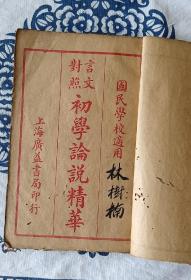 國民學校適用
林樹楠
言文
對照
初學論說精華
上海廣益書局印行